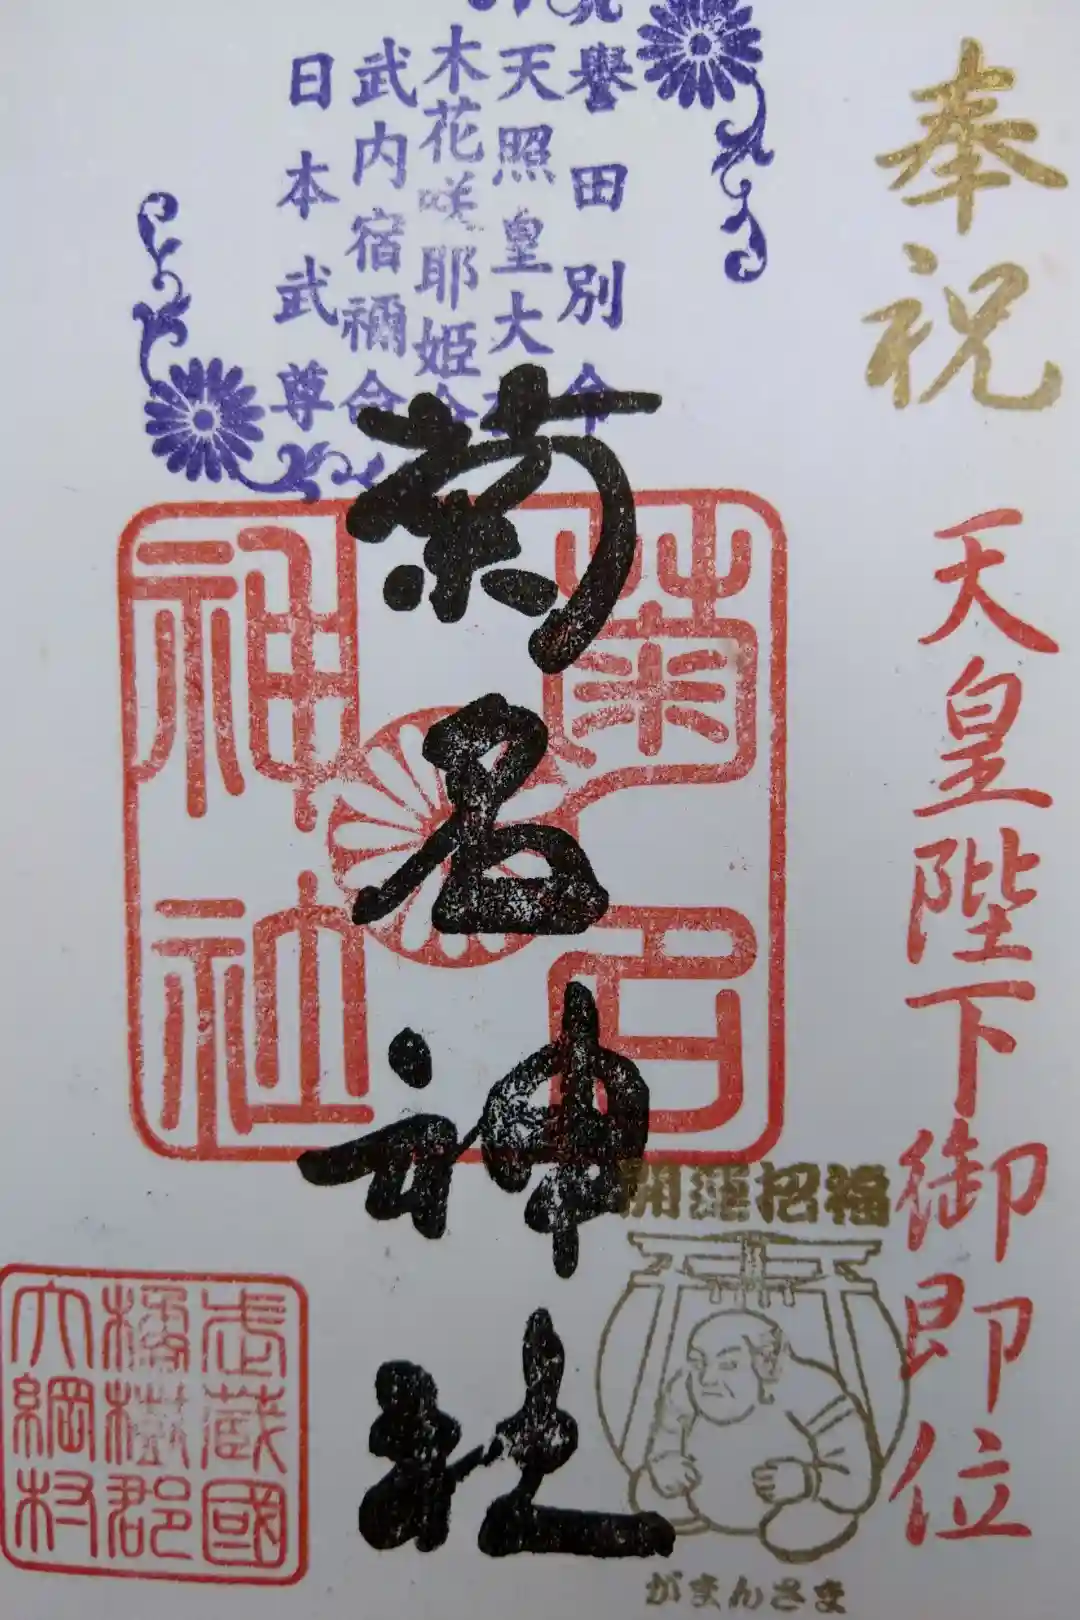 奉祝
天皇陛下御即位
譽田別命
天照皇大
木花咲耶姫命
武内宿禰命
日本武尊
菊名神社
菊名
神社
開運招福
がまんさま
武蔵國
橘樹郡
大綱村